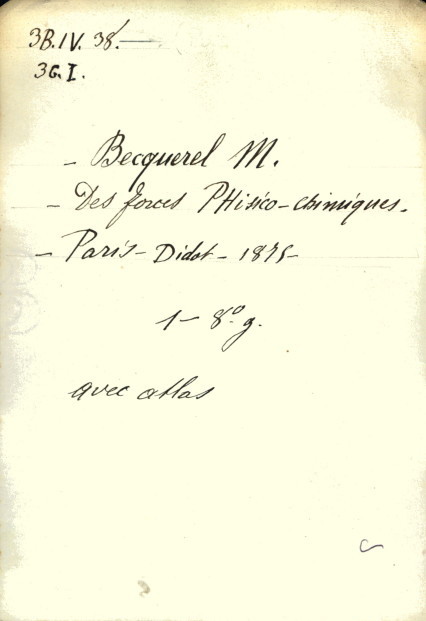 3B.IV. 38.
3G.I.
- Becquerel M.
- Des forces PHisico-chimiques.
- Paris - Didot - 1875-
1- 8º g.
avec atlas